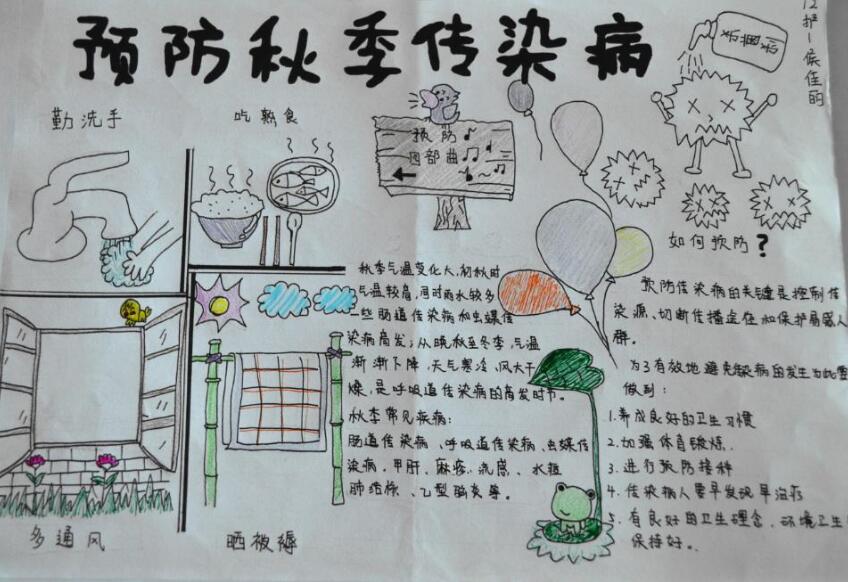 预防秋季传染病
12护一侯佳的
消毒剂
勤洗手
吃熟食
预防
四部曲
多通风
晒被褥
秋季气温变化大,初秋时
气温较高,同时雨水较多
一些肠道传染病和虫媒传
染病高发;从晚秋至冬季,气温
渐渐下降,天气寒冷,风大干
燥,是呼吸道传染病的高发时节。
秋季常见疾病:
肠道传染病、呼吸道传染病、虫媒传
染病,甲肝、麻疹、流感、水痘
肺结核、乙型脑炎等。
如何预防?
预防传染病的关键是控制传
染源、切断传播途在和保护易感人
群。
为了有效地避免染病的发生为此要
做到:
1.养成良好的卫生习惯
2.加强体育锻炼.
3.进行预防接种
4.传染病人要早发现早治疗
5.有良好的卫生理念,环境卫生
保持好。